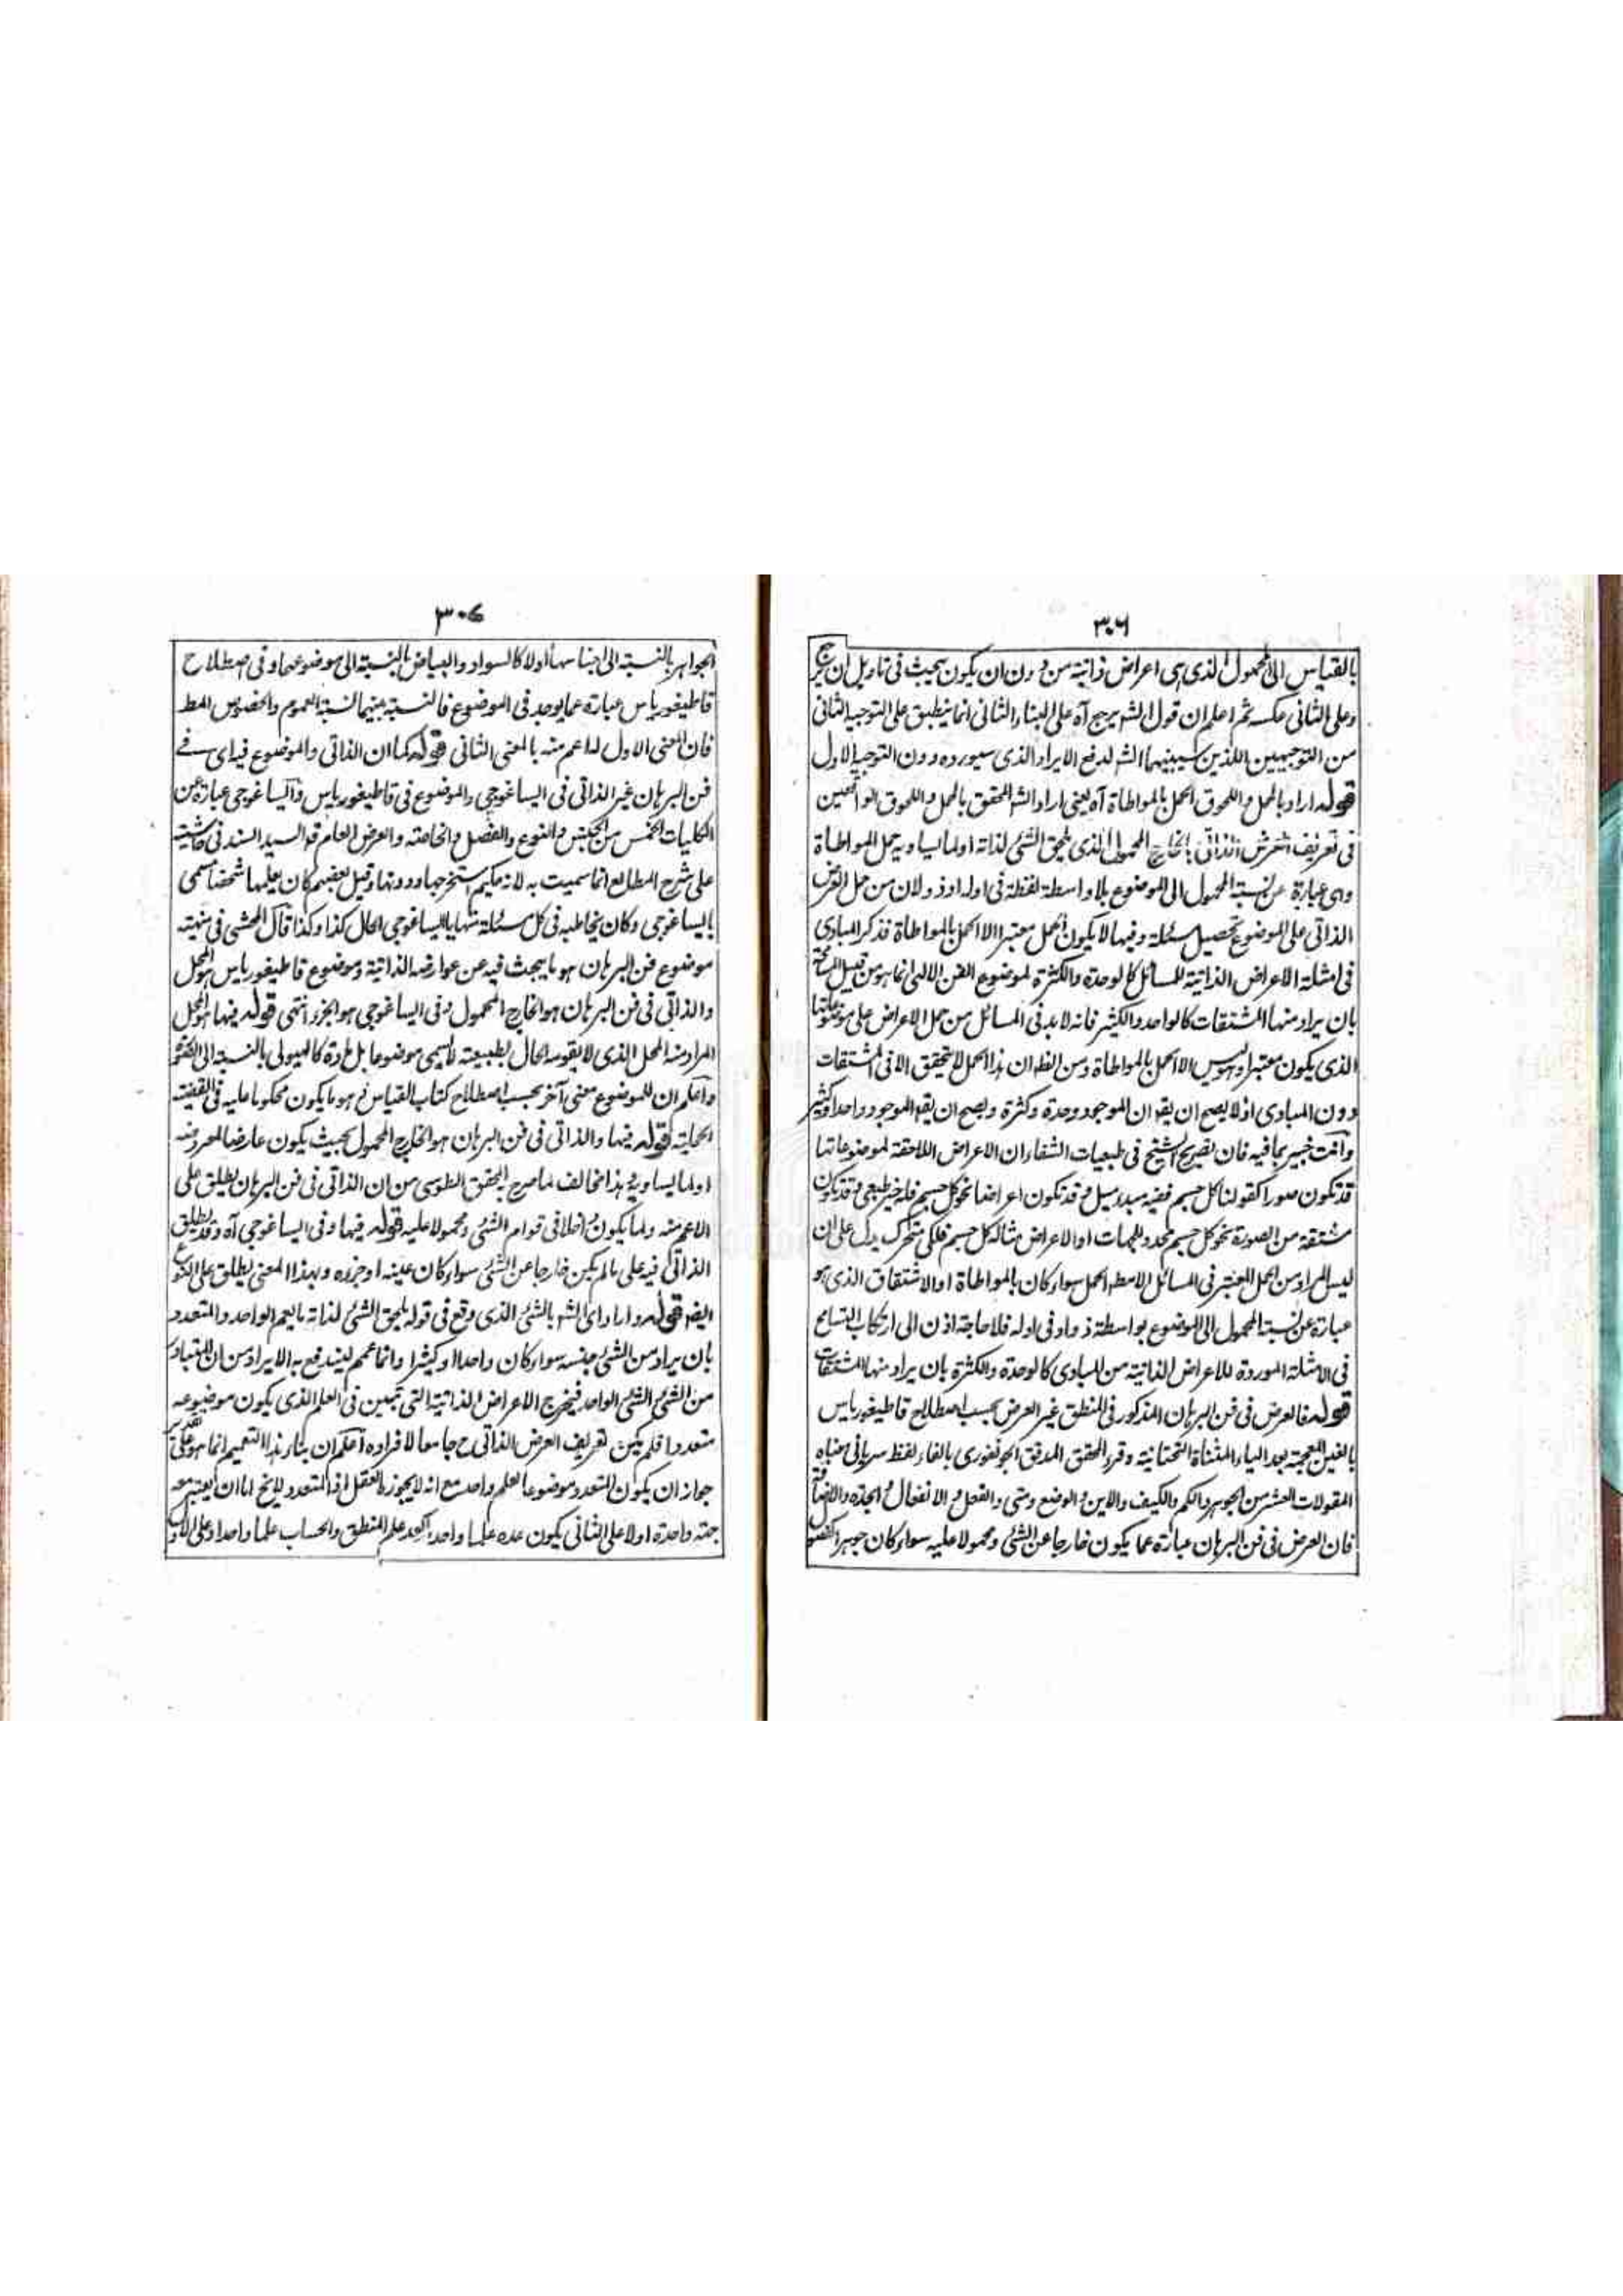 ٣٠٦
بالقياس الى المحمول الذى هى اعراض ذاتية من دون ان يكون بحيث فى تاويل ان يرجح
وعلى الثانى عكسه ثم اعلم ان قول الشه يرجح آه على البناء الثانى انما ينطبق على التوجيه الثانى
من التوجيهين اللذين سيبينهما الشه لدفع الايراد الذى سيورده دون التوجيه الاول
قوله اراد بالحمل واللحوق الحمل بالمواطاة آه يعنى اراد الشه المحقق بالحمل واللحوق الواقعين
فى تعريف العرض الذاتى بالخارج المحمول الذى يلحق الشئ لذاته اولما يساويه حمل المواطاة
وهى عبارة عن نسبة المحمول الى الموضوع بلا واسطة لفظة فى اوله اوذو لان من حمل العرض
الذاتى على الموضوع تحصيل مسئلة وفيها لا يكون الحمل معتبرا الا الحمل بالمواطاة فذكر المبادى
فى امثلة الاعراض الذاتية للمسائل كالوحدة والكثرة لموضوع الفن الالهى انما هو من قبيل المسامحة
بان يراد منها المشتقات كالواحد والكثير فانه لابد فى المسائل من حمل الاعراض على موضوعاتها
الذى يكون معتبرا وليس الا الحمل بالمواطاة ومن الظه ان هذا الحمل لا يتحقق الا فى المشتقات
دون المبادى اذ لا يصح ان يقه ان الموجود وحدة وكثرة ويصح ان يقه الموجود واحد او كثير
وانت خبير بما فيه فان تصريح الشيخ فى طبيعيات الشفاء ان الاعراض اللاحقة لموضوعاتها
قد تكون صورا كقولنا كل جسم ففيه مبدء ميل وقد تكون اعراضا نحو كل جسم فله حيز طبيعى وقد تكون
مشتقة من الصورة نحو كل جسم محدد للجهات او الاعراض مثاله كل جسم فلكى متحرك يدل على ان
ليس المراد من الحمل المعتبر فى المسائل الا مطه الحمل سواء كان بالمواطاة او الاشتقاق الذى هو
عبارة عن نسبة المحمول الى الموضوع بواسطة ذو او فى اوله فلا حاجة اذن الى ارتكاب التسامح
فى الامثلة الموردة للاعراض الذاتية من المبادى كالوحدة والكثرة بان يراد منها المشتقات
قوله فالعرض فى فن البرهان المذكور فى المنطق غير العرض بحسب اصطلاح قاطيغورياس
بالغين المعجمة بعد الياء المثناة التحتانية وقرء المحقق المدقق الجونفورى بالفاء لفظ سريانى معناه
المقولات العشر من الجوهر والكم والكيف والاين والوضع ومتى والفعل والانفعال والجدة والاضافة
فان العرض فى فن البرهان عبارة عما يكون خارجا عن الشئ ومحمولا عليه سواء كان جوهرا كفصول
٣٠٧
الجواهر بالنسبة الى اجناسها اولا كالسواد والبياض بالنسبة الى موضوعهما وفى اصطلاح
قاطيغورياس عبارة عما يوجد فى الموضوع فالنسبة بينهما نسبة العموم والخصوص المط
فان المعنى الاول له اعم منه بالمعنى الثانى قوله كما ان الذاتى والموضوع فيه اى فى
فن البرهان غير الذاتى فى ايساغوجى والموضوع فى قاطيغورياس وايساغوجى عبارة عن
الكليات الخمس من الجنس والنوع والفصل والخاصة والعرض العام قه السيد السند فى حاشيته
على شرح المطالع انما سميت به لانه حكيم استخرجها ودونها وقيل بعضهم كان يعلمها شخصا مسمى
بايساغوجى وكان يخاطبه فى كل مسئلة منها يا ايساغوجى الحال كذا وكذا قال المحشى فى منهيته
موضوع فن البرهان هو ما يبحث فيه عن عوارضه الذاتية وموضوع قاطيغورياس هو المحل
والذاتى فى فن البرهان هو الخارج المحمول وفى ايساغوجى هو الجزء انتهى قوله فيها هو المحل
المراد منه المحل الذى لا يقومه الحال بطبيعته لا يسمى موضوعا بل مادة كالهيولى بالنسبة الى الصورة
واعلم ان للموضوع معنى آخر بحسب اصطلاح كتاب القياس وهو ما يكون محكوما عليه فى القضية
الحملية قوله فيها والذاتى فى فن البرهان هو الخارج المحمول بحيث يكون عارضا لمعروضه
اولما يساويه هذا مخالف لما صرح به المحقق الطوسى من ان الذاتى فى فن البرهان يطلق على
الاعم منه ولما يكون داخلا فى قوام الشئ ومحمولا عليه قوله فيها وفى ايساغوجى آه وقد يطلق
الذاتى فيه على ما لم يكن خارجا عن الشئ سواء كان عينه او جزءه وبهذا المعنى يطلق على النوع
ايضه قوله واراد اى الشه بالشئ الذى وقع فى قوله يلحق الشئ لذاته ما يعم الواحد والمتعدد
بان يراد من الشئ جنسه سواء كان واحدا او كثيرا وانما عمم ليندفع به الايراد من ان المتبادر
من الشئ الشئ الواحد فيخرج الاعراض الذاتية التى تبين فى العلم الذى يكون موضوعه
متعددا فلم يكن تعريف العرض الذاتى ح جامعا لافراده اعلم ان بناء هذا التعميم انما هو على تقدير
جواز ان يكون المتعدد موضوعا لعلم واحد مع انه لا يجوزه العقل اذ المتعدد لا يخ اما ان يعتبر معه
جهة واحدة اولا على الثانى يكون عده علما واحدا كعد علم المنطق والحساب علما واحدا وعلى الاول